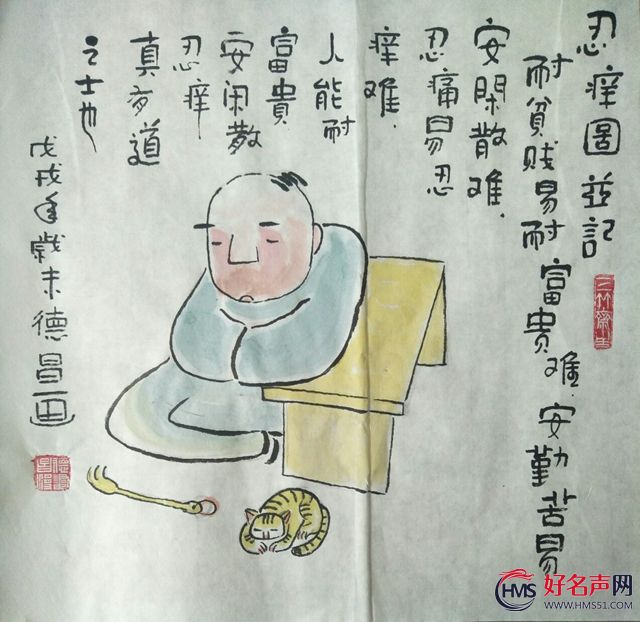 忍痒圖並記
耐貧贱易耐富贵难.安勤苦易
安閑散难.
忍痛易忍
痒难.
人能耐
富貴
安闲散
忍痒
真有道
之士也
戊戌年歲末德昌画
HMS
好名声网
WWW.HMS51.COM